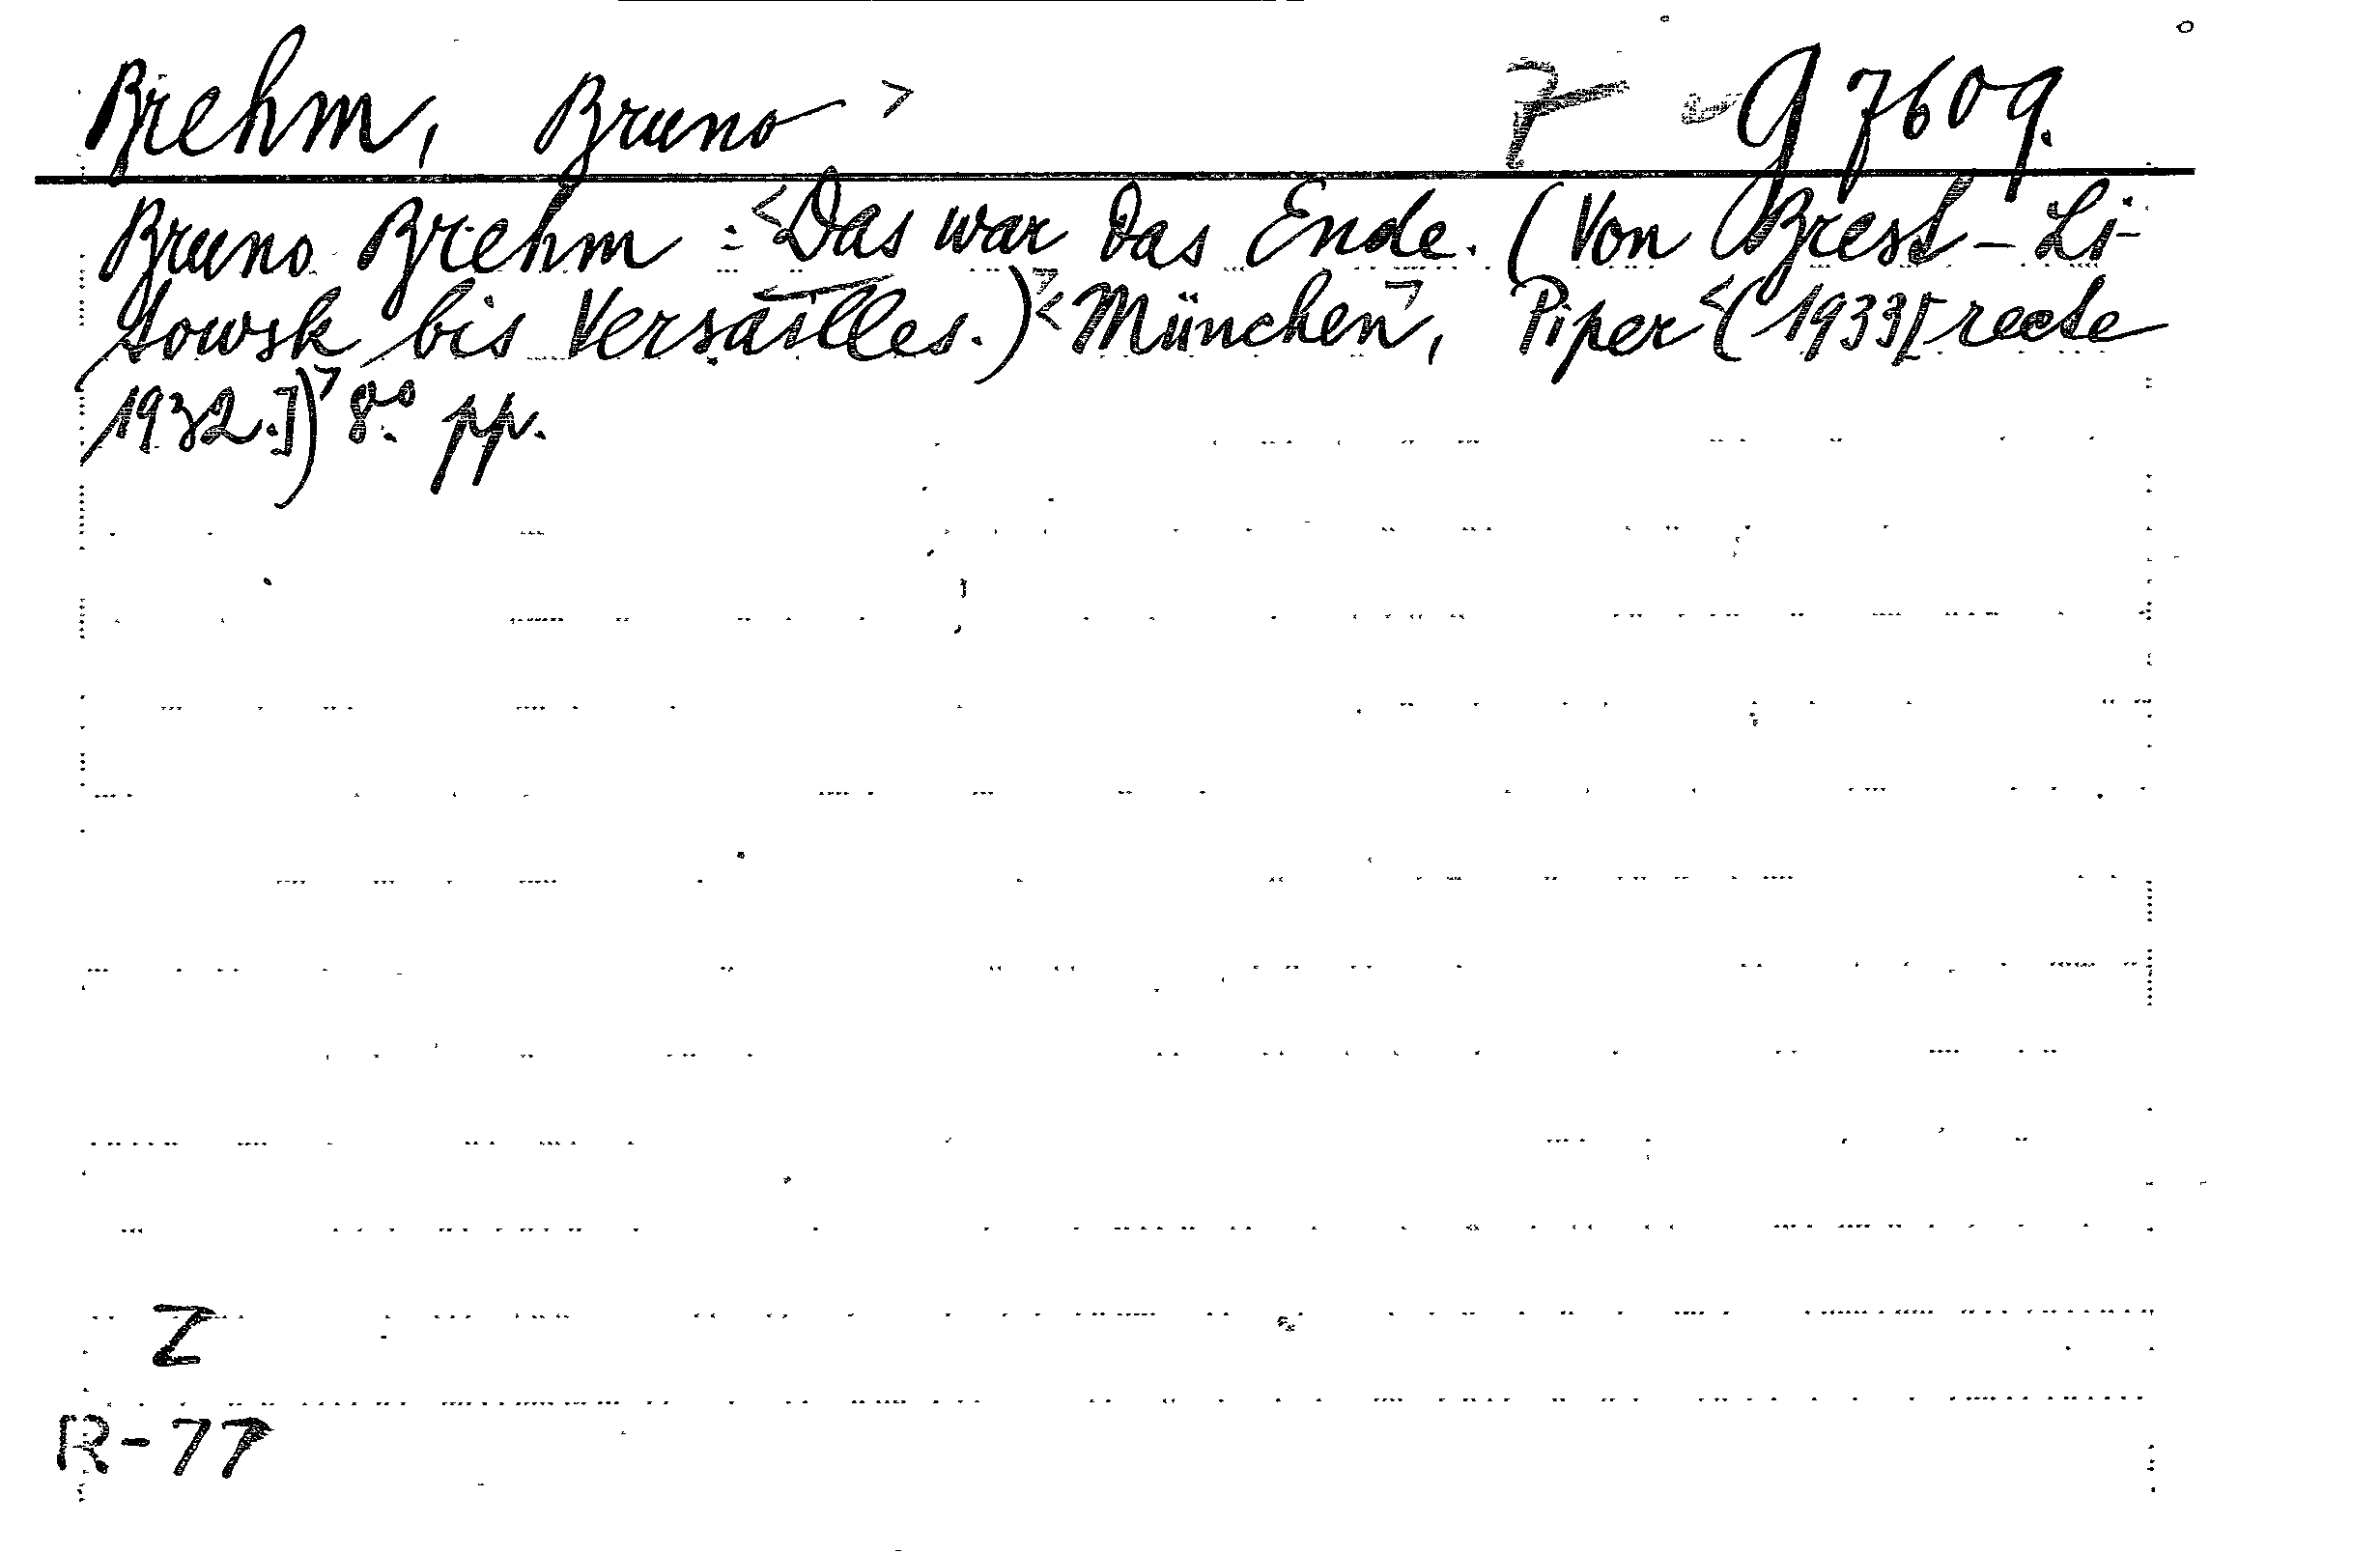 Brehm, Bruno > 7 - G 7609.
Bruno Brehm : <Das war das Ende. (Von Brest-Li-
towsk bis Versailles.)> <München>, Piper <(1933[recte
1932.])> 8.° pp.
Z
R-77